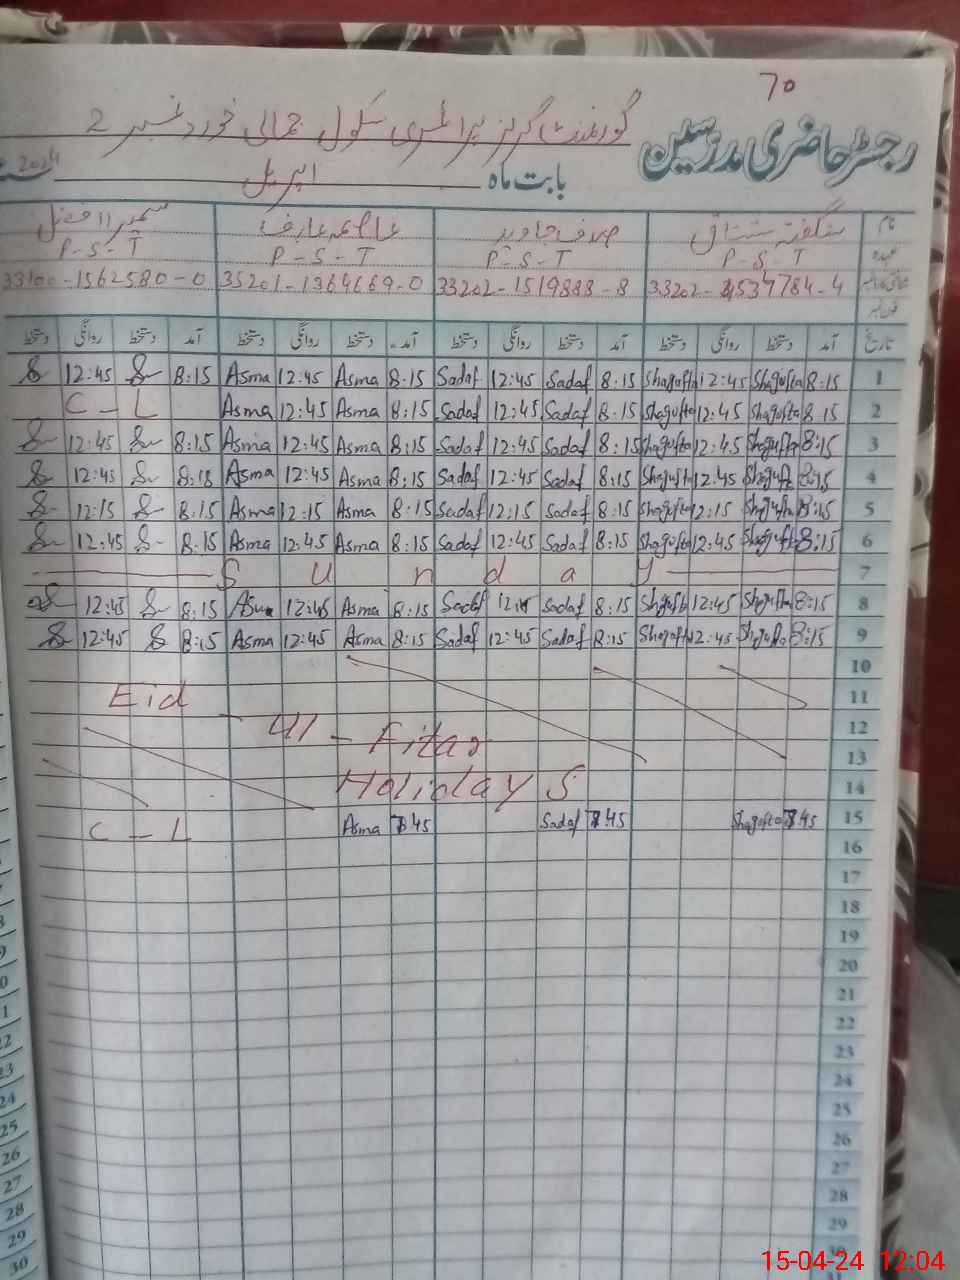 70
رجسٹر حاضری مدرسین گورنمنٹ گرلز پرائمری سکول جمالی خورد نمبر 2
بابت ماہ اپریل 2024
نام شگفتہ مشتاق صدف جاوید عاصمہ عارف سمیرا افضل
عہدہ P-S-T P-S-T P-S-T P-S-T
شناختی کارڈ نمبر 33202-1519888-8 35201-1364669-0 33100-1562580-0
فون نمبر
تاریخ آمد دستخط روانگی دستخط آمد دستخط روانگی دستخط آمد دستخط روانگی دستخط آمد دستخط روانگی دستخط
12:45 8:15 Asma 12:45 Asma 8:15 Sadaf 12:45 Sadaf 8:15 Shagufta 12:45 Shagufta 8:15 1
C-L Asma 12:45 Asma 8:15 Sadaf 12:45 Sadaf 8:15 Shagufta 12:45 Shagufta 8:15 2
12:45 8:15 Asma 12:45 Asma 8:15 Sadaf 12:45 Sadaf 8:15 Shagufta 12:45 Shagufta 8:15 3
12:45 8:15 Asma 12:45 Asma 8:15 Sadaf 12:45 Sadaf 8:15 Shagufta 12:45 Shagufta 8:15 4
12:15 8:15 Asma 12:15 Asma 8:15 Sadaf 12:15 Sadaf 8:15 Shagufta 12:15 Shagufta 8:15 5
12:45 8:15 Asma 12:45 Asma 8:15 Sadaf 12:45 Sadaf 8:15 Shagufta 12:45 Shagufta 8:15 6
Sunday 7
12:45 8:15 Asma 12:45 Asma 8:15 Sadaf 12:45 Sadaf 8:15 Shagufta 12:45 Shagufta 8:15 8
12:45 8:15 Asma 12:45 Asma 8:15 Sadaf 12:45 Sadaf 8:15 Shagufta 12:45 Shagufta 8:15 9
10
Eid 11
- Ul - Fitar 12
13
Holidays 14
C-L Asma 7:45 Sadaf 7:45 Shagufta 7:45 15
16
17
18
19
20
21
22
23
24
25
26
27
28
29
30
31
22
23
24
25
26
27
28
29
30
15-04-24 12:04